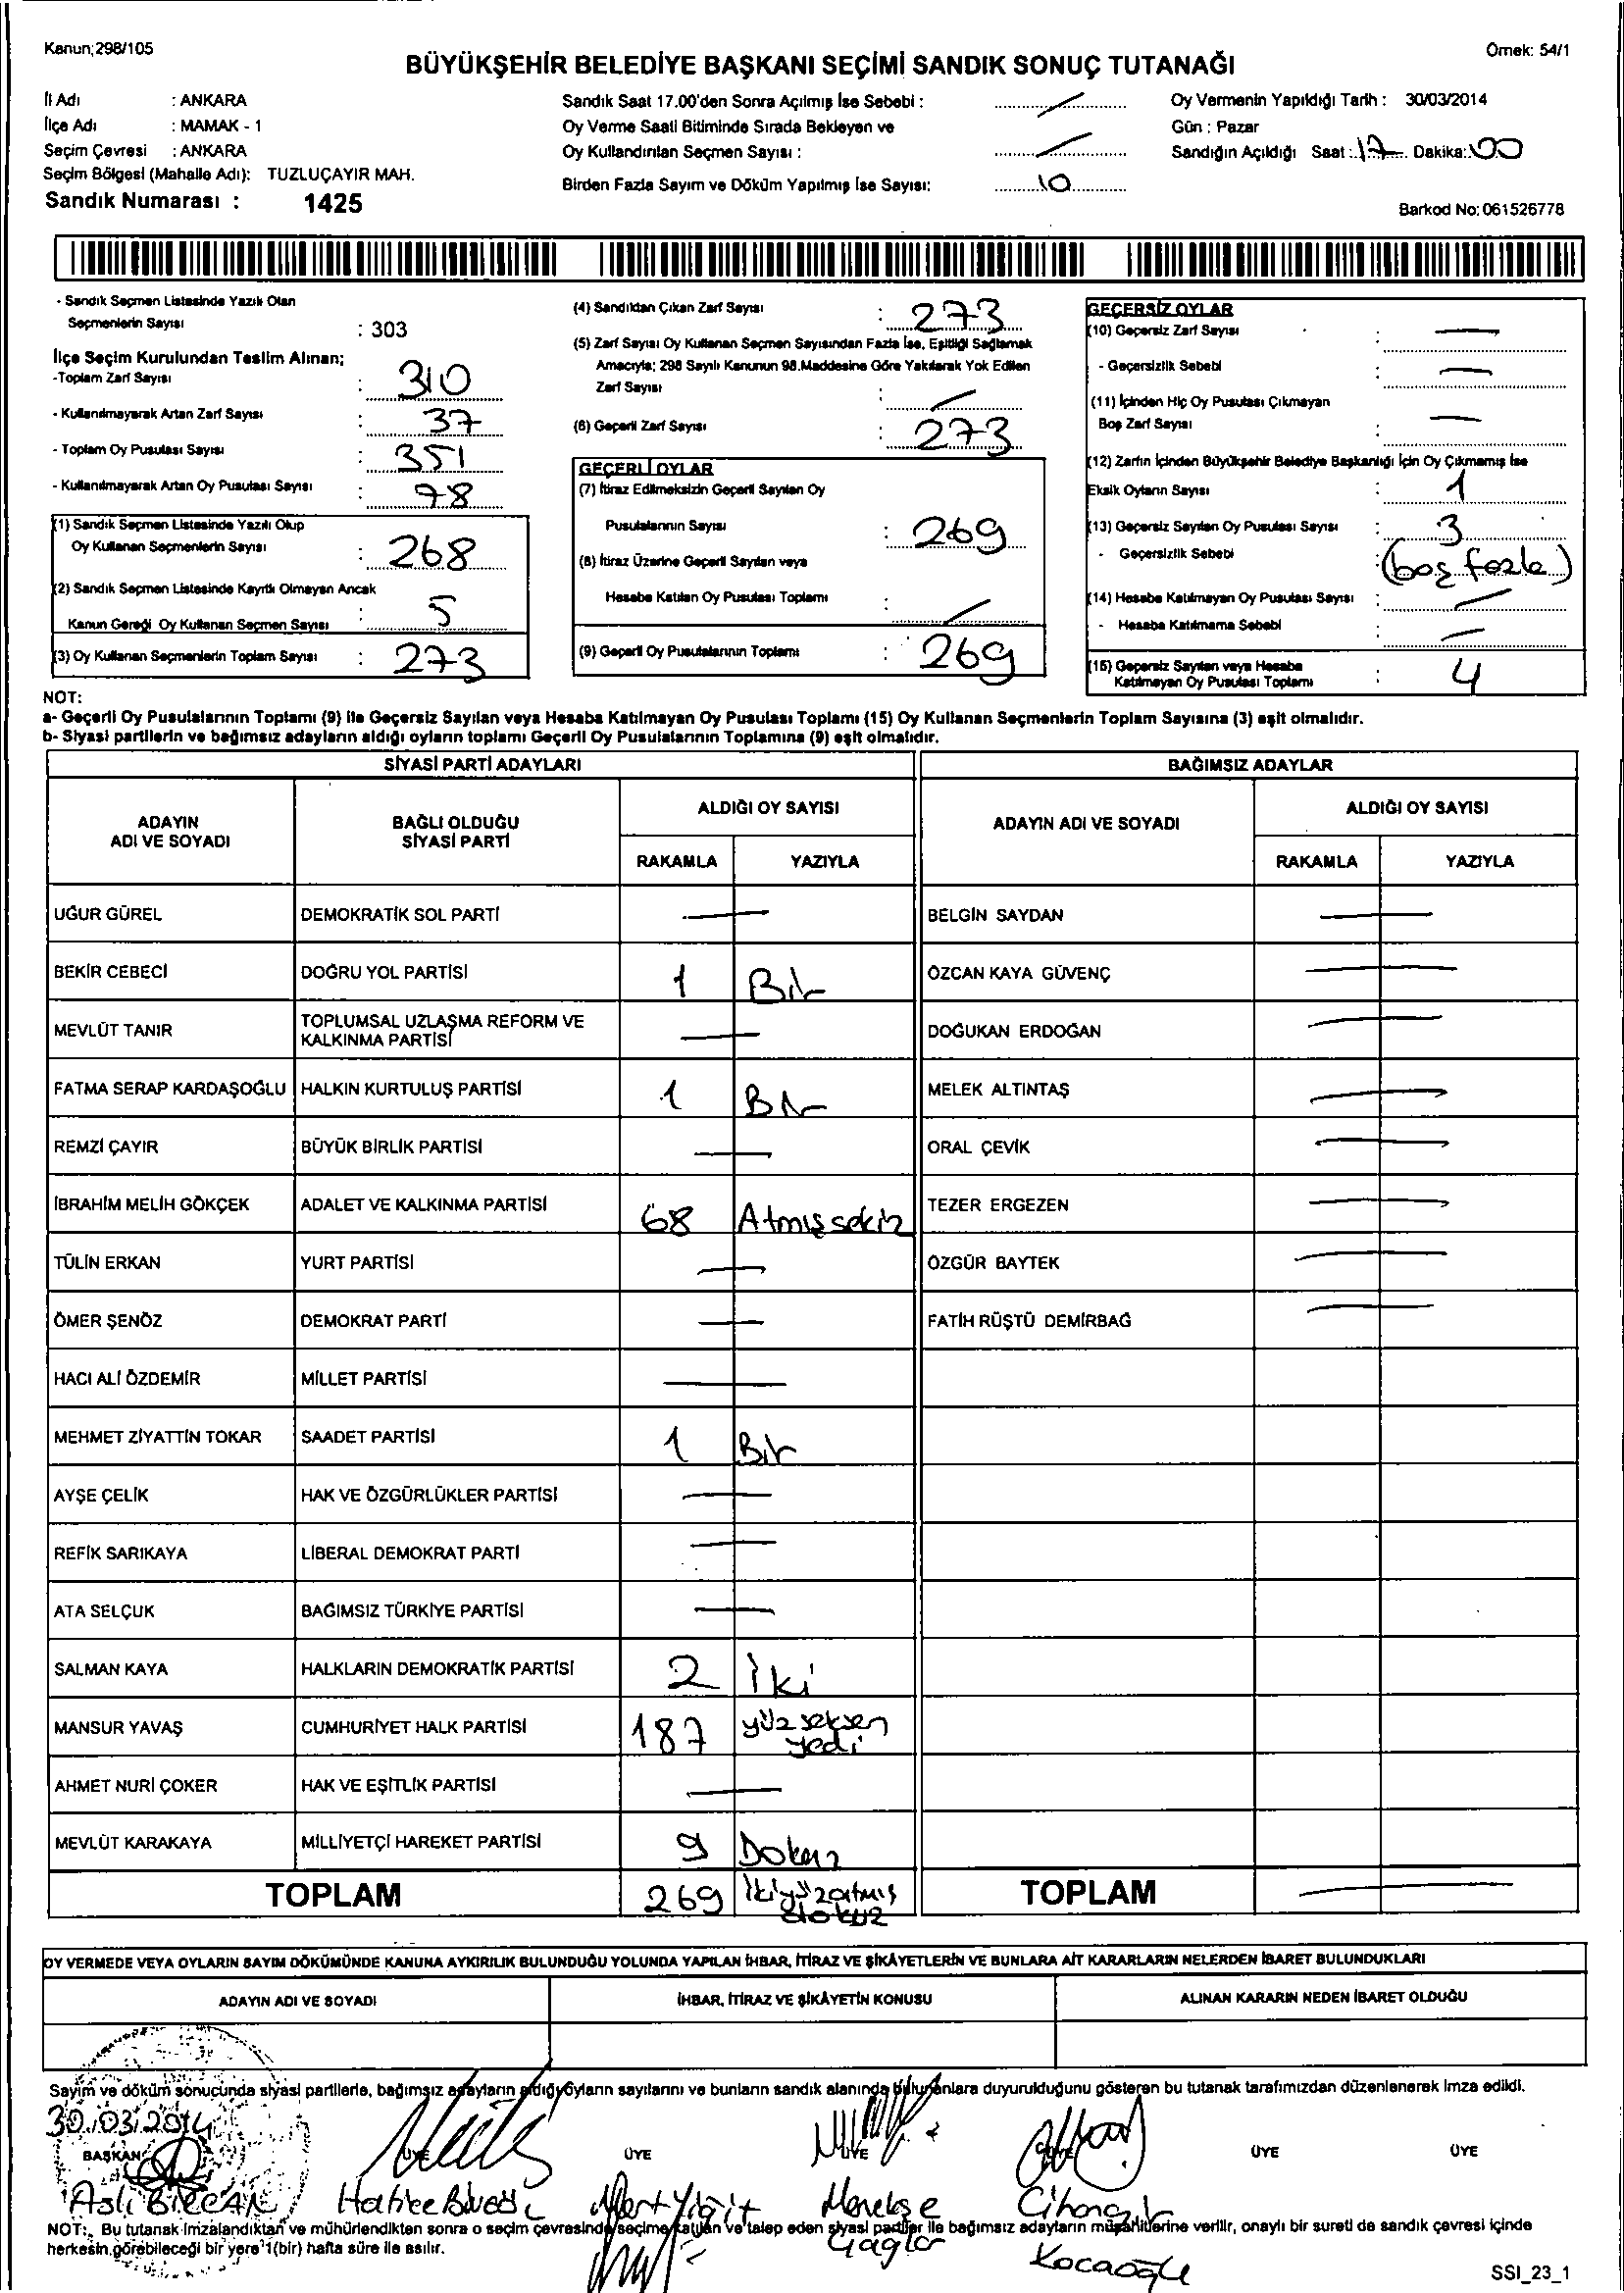 Kanun;298/105
Örnek: 54/1
BÜYÜKŞEHİR BELEDİYE BAŞKANI SEÇİMİ SANDIK SONUÇ TUTANAĞI
İl Adı : ANKARA
İlçe Adı : MAMAK - 1
Seçim Çevresi : ANKARA
Seçim Bölgesi (Mahalle Adı): TUZLUÇAYIR MAH.
Sandık Numarası : 1425
Sandık Saat 17.00'den Sonra Açılmış İse Sebebi :
Oy Verme Saati Bitiminde Sırada Bekleyen ve
Oy Kullandırılan Seçmen Sayısı :
Birden Fazla Sayım ve Döküm Yapılmış İse Sayısı: 10
Oy Vermenin Yapıldığı Tarih : 30/03/2014
Gün : Pazar
Sandığın Açıldığı Saat : 17 Dakika: 00
Barkod No: 061526778
- Sandık Seçmen Listesinde Yazılı Olan
Seçmenlerin Sayısı : 303
İlçe Seçim Kurulundan Teslim Alınan;
-Toplam Zarf Sayısı : 310
- Kullanılmayarak Artan Zarf Sayısı : 37
- Toplam Oy Pusulası Sayısı : 351
- Kullanılmayarak Artan Oy Pusulası Sayısı : 78
(1) Sandık Seçmen Listesinde Yazılı Olup
Oy Kullanan Seçmenlerin Sayısı : 268
(2) Sandık Seçmen Listesinde Kayıtlı Olmayan Ancak
Kanun Gereği Oy Kullanan Seçmen Sayısı : 5
(3) Oy Kullanan Seçmenlerin Toplam Sayısı : 273
(4) Sandıktan Çıkan Zarf Sayısı : 273
(5) Zarf Sayısı Oy Kullanan Seçmen Sayısından Fazla İse, Eşitliği Sağlamak
Amacıyla; 298 Sayılı Kanunun 98.Maddesine Göre Yakılarak Yok Edilen
Zarf Sayısı :
(6) Geçerli Zarf Sayısı : 273
GEÇERLİ OYLAR
(7) İtiraz Edilmeksizin Geçerli Sayılan Oy
Pusulalarının Sayısı : 269
(8) İtiraz Üzerine Geçerli Sayılan veya
Hesaba Katılan Oy Pusulası Toplamı :
(9) Geçerli Oy Pusulalarının Toplamı : 269
GEÇERSİZ OYLAR
(10) Geçersiz Zarf Sayısı : —
- Geçersizlik Sebebi : —
(11) İçinden Hiç Oy Pusulası Çıkmayan
Boş Zarf Sayısı : —
(12) Zarfın İçinden Büyükşehir Belediye Başkanlığı İçin Oy Çıkmamış İse
Eksik Oyların Sayısı : 1
(13) Geçersiz Sayılan Oy Pusulası Sayısı : 3
- Geçersizlik Sebebi : (boş fazla)
(14) Hesaba Katılmayan Oy Pusulası Sayısı : —
- Hesaba Katılmama Sebebi : —
(15) Geçersiz Sayılan veya Hesaba
Katılmayan Oy Pusulası Toplamı : 4
NOT:
a- Geçerli Oy Pusulalarının Toplamı (9) ile Geçersiz Sayılan veya Hesaba Katılmayan Oy Pusulası Toplamı (15) Oy Kullanan Seçmenlerin Toplam Sayısına (3) eşit olmalıdır.
b- Siyasi partilerin ve bağımsız adayların aldığı oyların toplamı Geçerli Oy Pusulalarının Toplamına (9) eşit olmalıdır.
SİYASİ PARTİ ADAYLARI
BAĞIMSIZ ADAYLAR
ADAYIN
ADI VE SOYADI
BAĞLI OLDUĞU
SİYASİ PARTİ
ALDIĞI OY SAYISI
RAKAMLA YAZIYLA
ADAYIN ADI VE SOYADI
ALDIĞI OY SAYISI
RAKAMLA YAZIYLA
UĞUR GÜREL DEMOKRATİK SOL PARTİ — BELGİN SAYDAN —
BEKİR CEBECİ DOĞRU YOL PARTİSİ 1 Bir ÖZCAN KAYA GÜVENÇ —
MEVLÜT TANIR TOPLUMSAL UZLAŞMA REFORM VE
KALKINMA PARTİSİ — DOĞUKAN ERDOĞAN —
FATMA SERAP KARDAŞOĞLU HALKIN KURTULUŞ PARTİSİ 1 Bir MELEK ALTINTAŞ —
REMZİ ÇAYIR BÜYÜK BİRLİK PARTİSİ — ORAL ÇEVİK —
İBRAHİM MELİH GÖKÇEK ADALET VE KALKINMA PARTİSİ 68 Atmışsekiz TEZER ERGEZEN —
TÜLİN ERKAN YURT PARTİSİ — ÖZGÜR BAYTEK —
ÖMER ŞENÖZ DEMOKRAT PARTİ — FATİH RÜŞTÜ DEMİRBAĞ —
HACI ALİ ÖZDEMİR MİLLET PARTİSİ —
MEHMET ZİYATTİN TOKAR SAADET PARTİSİ 1 Bir
AYŞE ÇELİK HAK VE ÖZGÜRLÜKLER PARTİSİ —
REFİK SARIKAYA LİBERAL DEMOKRAT PARTİ —
ATA SELÇUK BAĞIMSIZ TÜRKİYE PARTİSİ —
SALMAN KAYA HALKLARIN DEMOKRATİK PARTİSİ 2 İki
MANSUR YAVAŞ CUMHURİYET HALK PARTİSİ 187 yüzseksen
yedi
AHMET NURİ ÇOKER HAK VE EŞİTLİK PARTİSİ —
MEVLÜT KARAKAYA MİLLİYETÇİ HAREKET PARTİSİ 9 Dokuz
TOPLAM 269 İkiyüzatmış
dokuz
TOPLAM —
OY VERMEDE VEYA OYLARIN SAYIM DÖKÜMÜNDE KANUNA AYKIRILIK BULUNDUĞU YOLUNDA YAPILAN İHBAR, İTİRAZ VE ŞİKÂYETLERİN VE BUNLARA AİT KARARLARIN NELERDEN İBARET BULUNDUKLARI
ADAYIN ADI VE SOYADI İHBAR, İTİRAZ VE ŞİKÂYETİN KONUSU ALINAN KARARIN NEDEN İBARET OLDUĞU
Sayım ve döküm sonucunda siyasi partilerle, bağımsız adayların aldığı oyların sayılarını ve bunların sandık alanında bulunanlara duyurulduğunu gösteren bu tutanak tarafımızdan düzenlenerek imza edildi.
30.03.2014
BAŞKAN ÜYE ÜYE ÜYE ÜYE ÜYE ÜYE
Aslı BİRCAN Hatice Mert Yiğit Menekşe Cihangir
Çağlar Kocaoğlu
NOT: Bu tutanak imzalandıktan ve mühürlendikten sonra o seçim çevresinde seçime katılan ve talep eden siyasi partiler ile bağımsız adayların müşahitlerine verilir, onaylı bir sureti de sandık çevresi içinde
herkesin görebileceği bir yere 1(bir) hafta süre ile asılır.
SSI_23_1